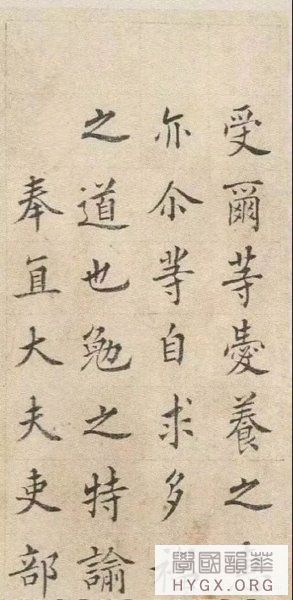 受爾等愛養之
亦尒等自求多
之道也勉之特諭
奉直大夫吏部
華韻國學
HYGX.ORG